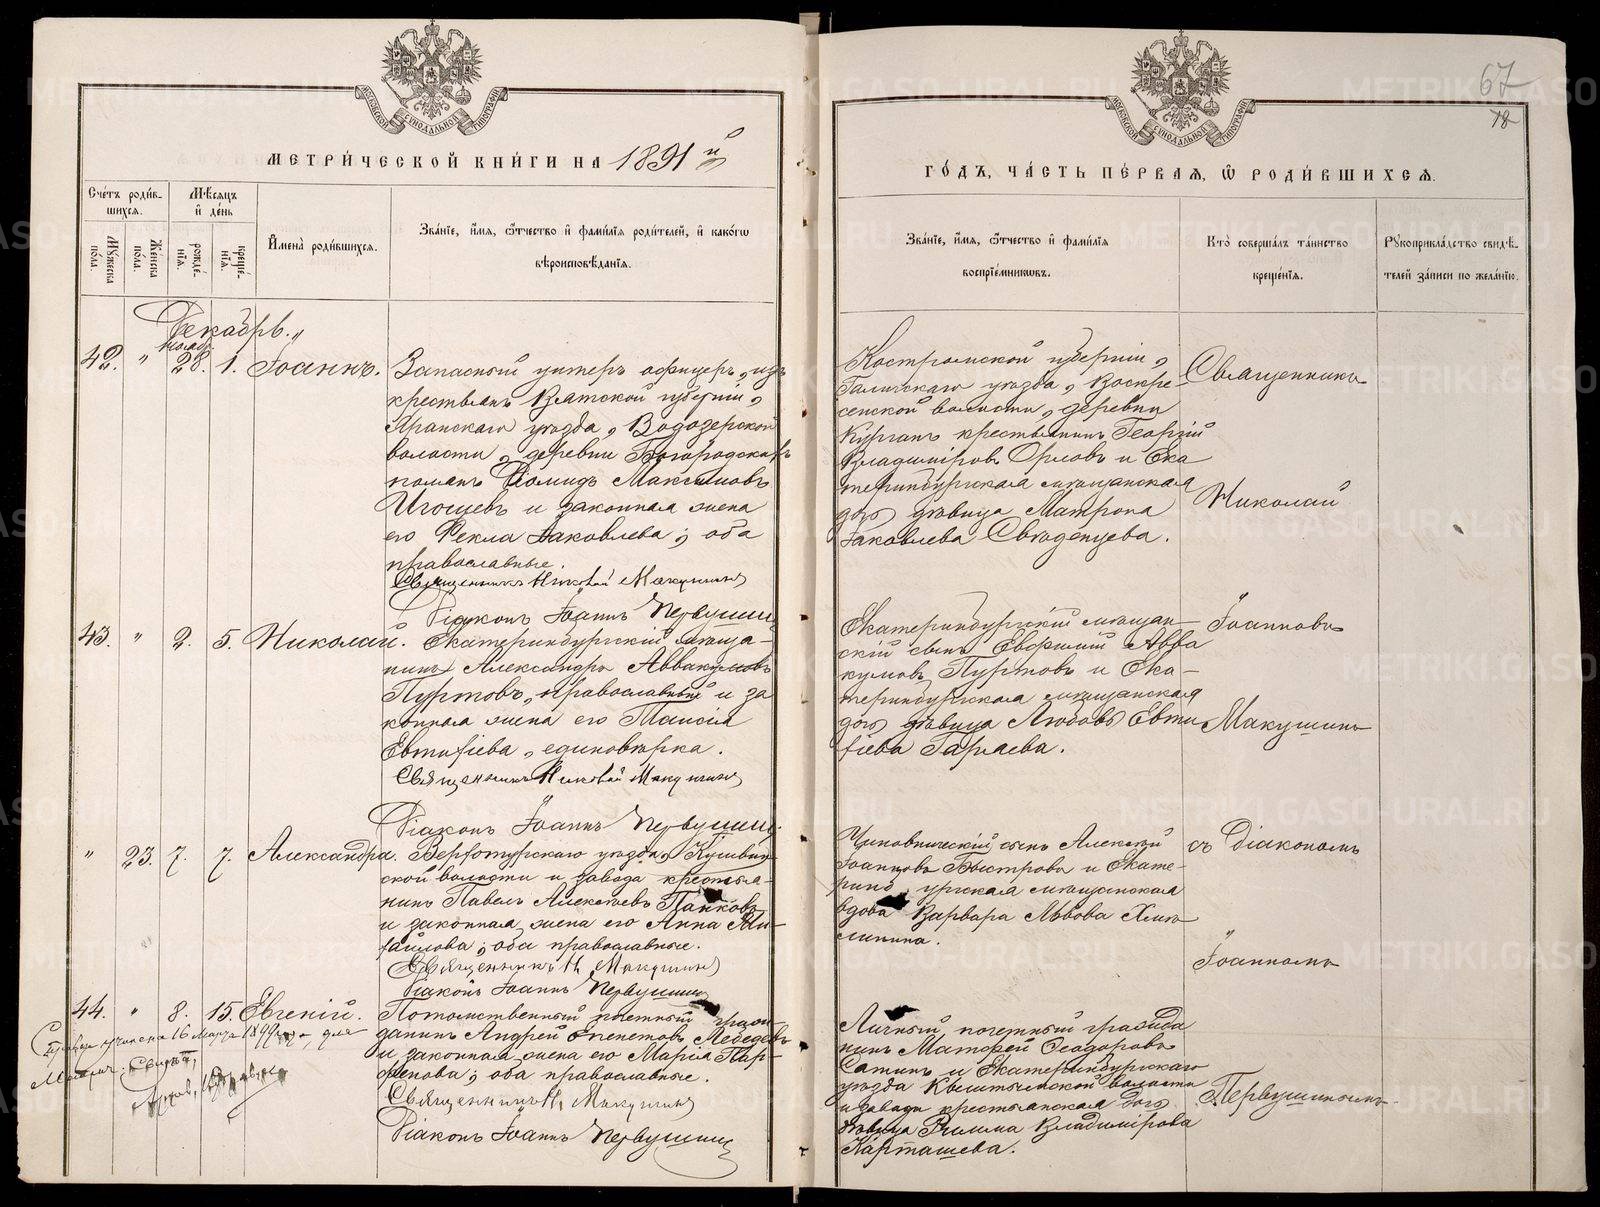 67
78
МЕТРИ́ЧЕСКОЙ КНИ́ГИ НА 1891 й
ГО́ДЪ, ЧА́СТЬ ПЕ́РВАЯ, Ѿ РОДИ́ВШИХСЯ.
Сче́тъ роди́в-
шихся.
Мѣ́сяцъ
и҆ де́нь
Мꙋ́жеска по́ла.
Же́нска по́ла.
рожде́-
нїѧ.
креще́-
нїѧ.
И҆мена̀ роди́вшихся.
Зва́нїе, и҆́мя, ѻ҆́тчество и҆ фами́лїя роди́телей, и҆ како́гѡ
вѣроисповѣ́данїя.
Зва́нїе, и҆́мя, ѻ҆́тчество и҆ фами́лїя
воспрїе́мникѡвъ.
Кто̀ соверша́лъ та́инство
креще́нїя.
Рꙋкоприкла́дство свидѣ́-
телей за́писи по жела́нїю.
Декабрь.
Ноябр.
42. " 28. 1. Іоаннъ.
Запасный унтеръ офицеръ, изъ
крестьянъ Вятской губерніи,
Яранскаго уѣзда, Водозерской
волости, деревни Богородской
Діомидъ Максимовъ
Игошевъ и законная жена
его Фекла Іаковлева; оба
православные.
Священникъ Николай Макушинъ
Діаконъ Іоаннъ Первушинъ
Костромской губерніи,
Галичскаго уѣзда, Воскре-
сенской волости, деревни
Курганъ крестьянинъ Георгій
Владиміровъ Орловъ и Ека
теринбургская мѣщанская
дочь дѣвица Матрона
Іаковлева Свѣденцева.
Священникъ
Николай
43. " 2. 5. Николай.
Екатеринбургскій мѣща-
нинъ Александръ Аввакумовъ
Пуртовъ, православный и за
конная жена его Таисія
Евтифіева, единовѣрка.
Священникъ Николай Макушинъ
Діаконъ Іоаннъ Первушинъ
Екатеринбургскій мѣщан-
скій сынъ Евфимій Авва
кумовъ Пуртовъ и Ека-
теринбургская мѣщанская
дочь дѣвица Любовь Евти
фіева Гаряева.
Іоанновъ
Макушинъ
" 23. 7. 7. Александра.
Верхотурскаго уѣзда, Кушвин-
ской волости и завода крестья-
нинъ Павелъ Алексѣевъ Панковъ
и законная жена его Анна Ми-
хайлова; оба православные.
Священникъ Н. Макушинъ
Діаконъ Іоаннъ Первушинъ
Чиновническій сынъ Алексѣй
Іоанновъ Быстровъ и Екате-
ринб ургская мѣщанская
вдова Варвара Львова Хмѣ
линина.
съ Діакономъ
Іоанномъ
44. " 8. 15. Евгеній.
Потомственный почетный граж-
данинъ Андрей Епенетовъ Лебедевъ
и законная жена его Марія Пар-
фенова; оба православные.
Священникъ Н. Макушинъ
Діаконъ Іоаннъ Первушинъ
16 Марта 1899 для
Личный почетный гражда
нинъ Матфей Ѳеодоровъ
Сатинъ и Екатеринбургскаго
уѣзда Кыштымской волости
и завода крестьянская дочь
дѣвица Римма Владимірова
Карташева.
Первушинымъ.